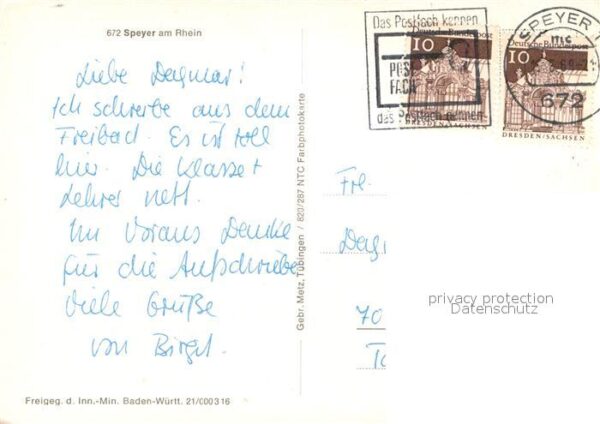 672 Speyer am Rhein
Liebe Dagmar!
Ich schreibe aus dem
Freibad. Es ist toll
hier. Die Klasse +
Lehrer nett.
Im Voraus Danke
für die Aufschriebe
Viele Grüße
von Birgit.
Freigeg. d. Inn.-Min. Baden-Württ. 21/000316
Gebr. Metz, Tübingen / 820/287 NTC Farbphotokarte
Das Postfach kennen
POST
FACH
das Postfach nennen
Deutsche Bundespost
10
DRESDEN/SACHSEN
Deutsche Bundespost
10
DRESDEN/SACHSEN
SPEYER 1
672
Frl.
Dag
70
privacy protection
Datenschutz